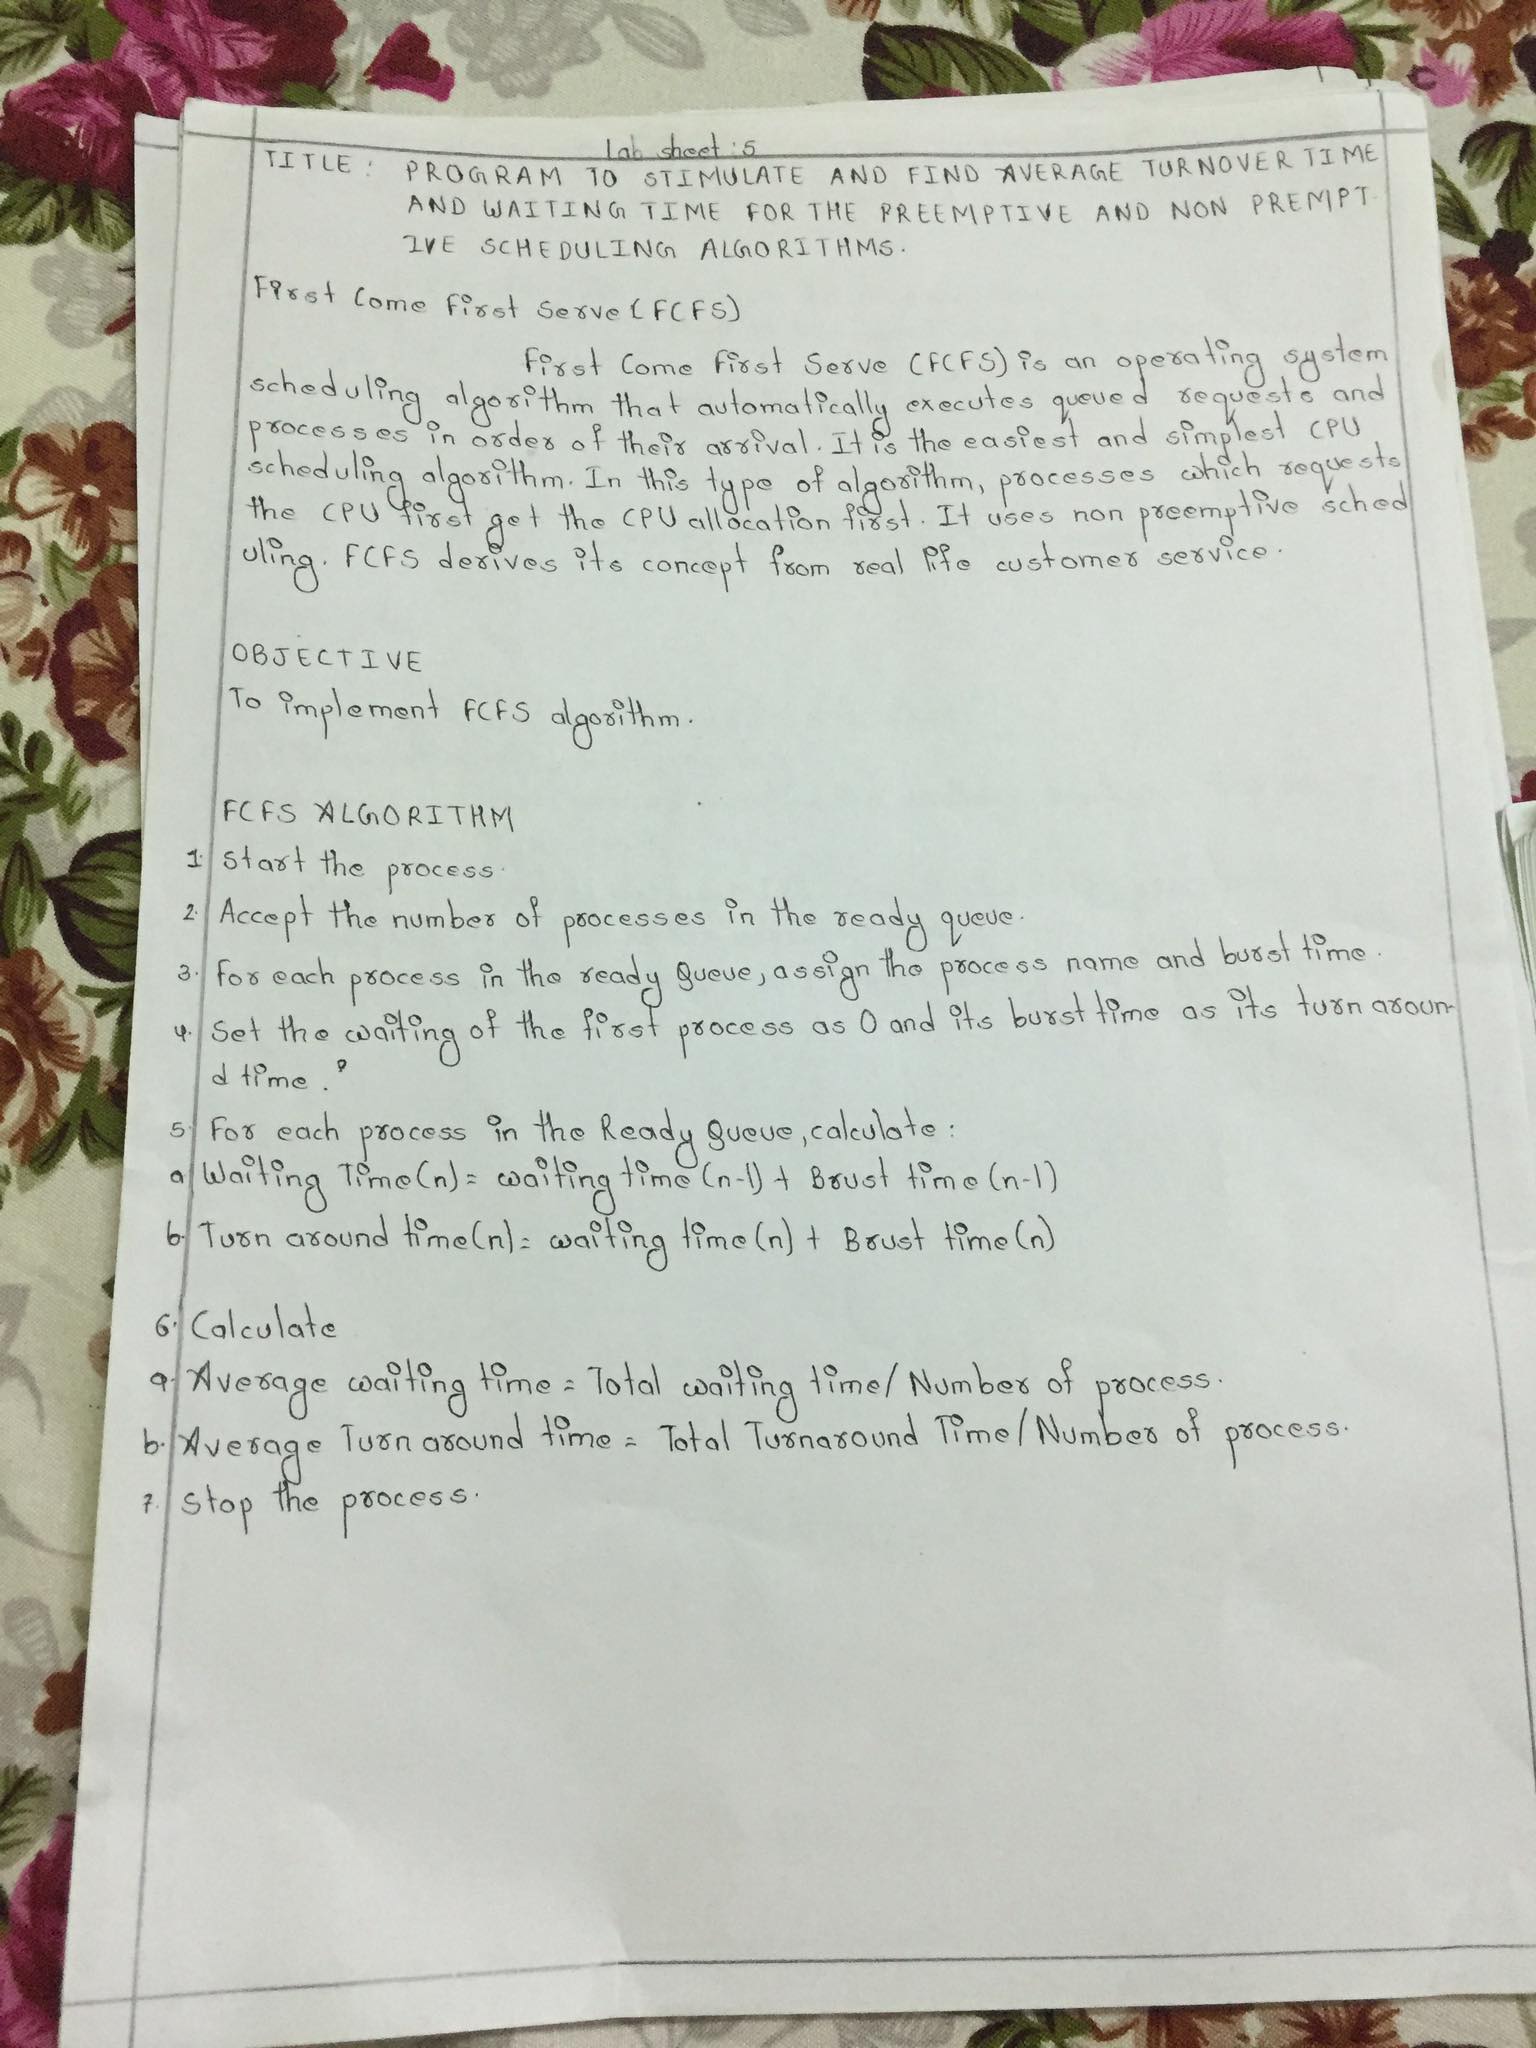 Lab sheet : 5
TITLE : PROGRAM TO STIMULATE AND FIND AVERAGE TURNOVER TIME
AND WAITING TIME FOR THE PREEMPTIVE AND NON PREMPT
IVE SCHEDULING ALGORITHMS.
First Come First Serve (FCFS)
First Come First Serve (FCFS) is an operating system
scheduling algorithm that automatically executes queued requests and
processes in order of their arrival. It is the easiest and simplest CPU
scheduling algorithm. In this type of algorithm, processes which requests
the CPU first get the CPU allocation first. It uses non preemptive sched
uling. FCFS derives its concept from real life customer service.
OBJECTIVE
To implement FCFS algorithm.
FCFS ALGORITHM
1. Start the process.
2. Accept the number of processes in the ready queue.
3. For each process in the ready Queue, assign the process name and burst time.
4. Set the waiting of the first process as 0 and its burst time as its turn aroun-
d time.
5. For each process in the Ready Queue, calculate :
a. Waiting Time(n) = waiting time (n-1) + Brust time (n-1)
b. Turn around time(n) = waiting time (n) + Brust time (n)
6. Calculate
a. Average waiting time = Total waiting time / Number of process.
b. Average Turn around time = Total Turnaround Time / Number of process.
7. Stop the process.